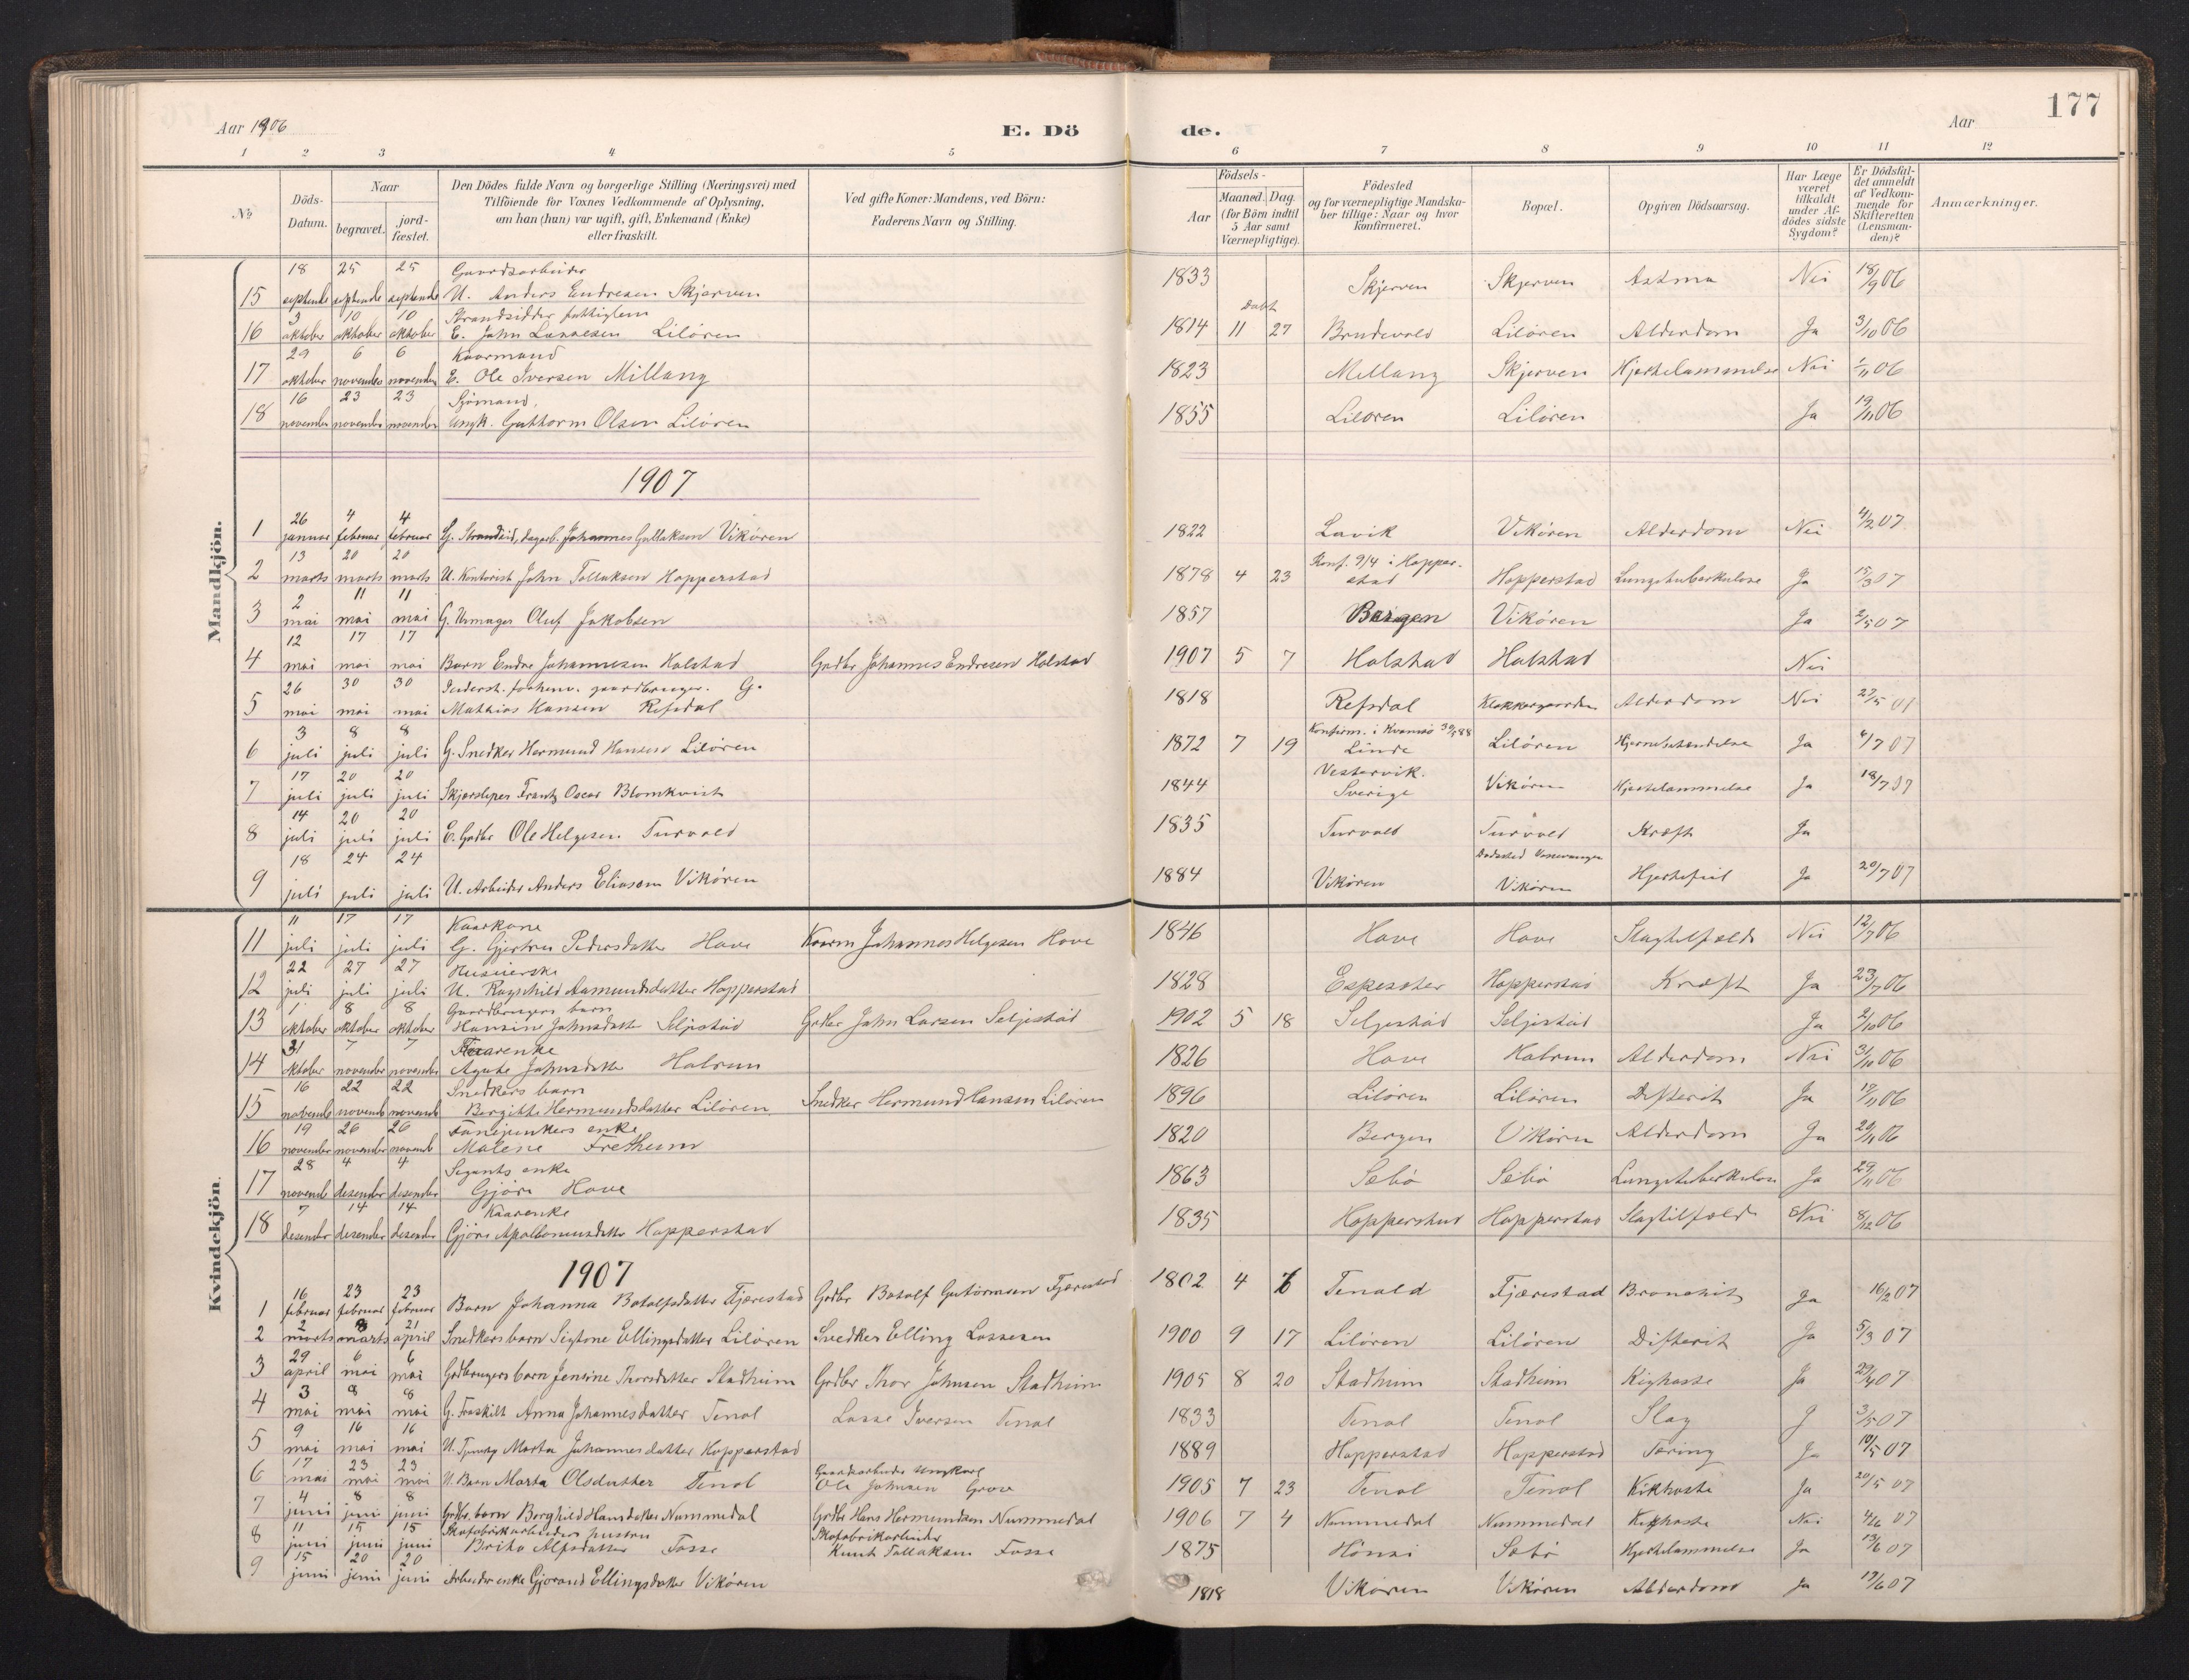 177
Aar 1906
E. Dö
de.
Aar
1 2 3 4 5 6 7 8 9 10 11 12
№
Döds-Datum.
Naar
begravet.
jord-fæstet.
Den Dödes fulde Navn og borgerlige Stilling (Næringsvei) med
Tilföiende for Voxnes Vedkommende af Oplysning,
om han (hun) var ugift, gift, Enkemand (Enke)
eller fraskilt.
Ved gifte Koner: Mandens, ved Börn:
Faderens Navn og Stilling.
Födsels-
Aar
Maaned. Dag.
(for Börn indtil
5 Aar samt
Værnepligtige).
Födested
og for værnepligtige Mandska-
ber tillige: Naar og hvor
konfirmeret.
Bopæl.
Opgiven Dödsaarsag.
Har Læge
været
tilkaldt
under Af-
dödes sidste
Sygdom?
Er Dödsfal-
det anmeldt
af Vedkom-
mende for
Skifteretten
(Lensman-
den)?
Anmærkninger.
Mandkjön.
18 25 25 Gaardsarbeider
15 septembe septembe septembe U. Anders Endresen Skjerven 1833 Skjerven Skjerven Astma Nei 18/9 06
3 10 10 Strandsidder fattiglem Døbt
16 oktober oktober oktober E. John Lassesen Liløren 1814 11 27 Brudevold Liløren Alderdom Ja 3/10 06
29 6 6 Kaarmand
17 oktober november november E. Ole Iversen Millang 1823 Mellang Skjerven Hjertelammelse Nei 1/11 06
16 23 23 Sjömand,
18 november november november Ungk. Guttorm Olsen Liløren 1855 Liløren Liløren Ja 19/11 06
1907
26 4 4
1 januar februar februar G. Strandsid, dagarb. Johannes Gullakson Vikøren 1822 Lavik Vikøren Alderdom Nei 4/2 07
13 20 20 Konf. 9/4 i Hopper-
2 marts marts marts U. Kontorist John Tollaksen Hopperstad 1878 4 23 stad Hopperstad Lungetuberkulose Ja 15/3 07
2 11 11
3 mai mai mai G. Urmager Oluf Jakobsen 1857 Bergen Vikøren Ja 2/5 07
12 17 17
4 mai mai mai Barn Endre Johannesen Holstad Grdbr Johannes Endresen Holstad 1907 5 7 Holstad Holstad Nei
26 30 30 G.
5 mai mai mai Mathias Hansen Refsdal 1818 Refsdal Klokkergaarden Alderdom Nei 27/5 07
3 8 8 Konfirm. i Kvamsø
6 juli juli juli G. Snedker Hermund Hansen Liløren 1872 7 19 Linde Liløren Ja 4/7 07
17 20 20 Vestervik.
7 juli juli juli Skjærsliper Frantz Oscar Blomkvist 1844 Sverige Vikøren Hjertelammelse Ja 18/7 07
14 20 20
8 juli juli juli E. Grdbr Ole Helgesen Turvold 1835 Turvold Turvold Kræft Ja
18 24 24 Dødssted Vossevangen
9 juli juli juli U. Arbeider Anders Eliasson Vikøren 1884 Vikøren Vikøren Hjertefeil Ja 20/7 07
Kvindekjön.
11 17 17 Kaarkone
11 juli juli juli G. Gjertrud Pedersdatter Hove Kaarm Johannes Helgesen Hove 1846 Hove Hove Slagtilfælde Nei 12/7 06
22 27 27
12 juli juli juli U. Ragnhild Aamundsdatter Hopperstad 1828 Espeseter Hopperstad Kræft Ja 23/7 06
1 8 8 Gaardbrugers barn
13 oktober oktober oktober Hansine Johnsdatter Seljestad Grdbr John Larsen Seljestad 1902 5 18 Seljestad Seljestad Ja 2/10 06
31 7 7 Kaarenke
14 oktober november november Agate Johnsdatter Holrum 1826 Hove Holrum Alderdom Nei 3/11 06
16 22 22 Snedkers barn
15 novemb novemb novemb Bergitte Hermundsdatter Liløren Snedker Hermund Hansen Liløren 1896 Liløren Liløren Difterit Ja 17/11 06
19 26 26 Fanejunkers enke
16 november november novemb Malene Fretheim 1820 Bergen Vikøren Alderdom Ja 20/11 06
28 4 4 Segants enke
17 novemb desember desember Gjøri Hove 1863 Sæbø Sæbø Lungetuberkulose Ja 29/11 06
7 14 14 Kaarenke
18 desember desember desember Gjøri Apolloniusdatter Hopperstad 1835 Hopperstad Hopperstad Slagtilfælde Nei 8/12 06
1907
16 23 23
1 februar februar februar Barn Johanna Botolfsdatter Fjærestad Grdbr Botolf Gutormsen Fjærestad 1802 4 Tenold Fjærestad Bronchit Ja 16/2 07
2 8 21
2 marts marts april Snedkers barn Sigtone Ellingsdatter Liløren Snedker Elling Lassesen 1900 9 17 Liløren Liløren Difterit Ja 5/3 07
29 6 6
3 april mai mai Grdbrugers barn Jensine Thorsdatter Stadheim Grdbr Thor Johnsen Stadheim 1905 8 20 Stadheim Stadheim Kighoste Ja 29/4 07
3 8 8
4 mai mai mai G. Fraskilt Anna Johannesdatter Tenol Lasse Iversen Tenol 1833 Tenol Tenol Slag J 3/5 07
9 16 16
5 mai mai mai U. Marta Johannesdatter Hopperstad 1889 Hopperstad Hopperstad Tæring Ja 10/5 07
17 23 23 Gaardsarbeider ungkarl
6 mai mai mai U. Barn Marta Olsdatter Tenol Ole Johnsen Grove 1905 7 23 Tenol Tenol Kikhoste Ja 20/5 07
4 8 8
7 juni juni juni Grdbr. barn Borghild Hansdatter Nummedal Grdbr Hans Hermundsen Nummedal 1906 7 4 Nummedal Nummedal Kighoste Nei 4/6 07
11 15 15 Skofabrikarbeiders hustru Skofabrikarbeider
8 juni juni juni Brita Alfsdatter Fosse Knut Tollaksen Fosse 1875 Hønsi Sæbø Hjertelammelse Ja 13/6 07
15 20 20
9 juni juni juni Arbeider enke Gjorond Ellingsdatter Vikøren 1818 Vikøren Vikøren Alderdom Ja 17/6 07